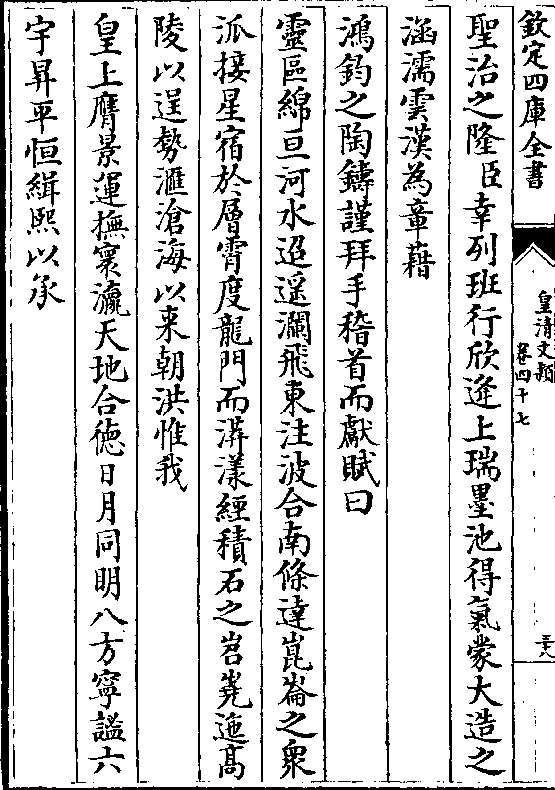 欽定四庫全書
皇清文穎
卷四十七
三六
聖治之隆臣幸列班行欣逢上瑞墨池得氣蒙大造之
涵濡雲漢為章藉
鴻鈞之陶鑄謹拜手稽首而獻賦曰
靈區綿亘河水迢遥瀾飛東注波合南條達崑崙之衆
派接星宿於層霄度龍門而漭漾經積石之岧嶤迤髙
陵以逞勢滙滄海以来朝洪惟我
皇上膺景運撫寰瀛天地合徳日月同明八方寧謐六
宇昇平恒緝熙以承